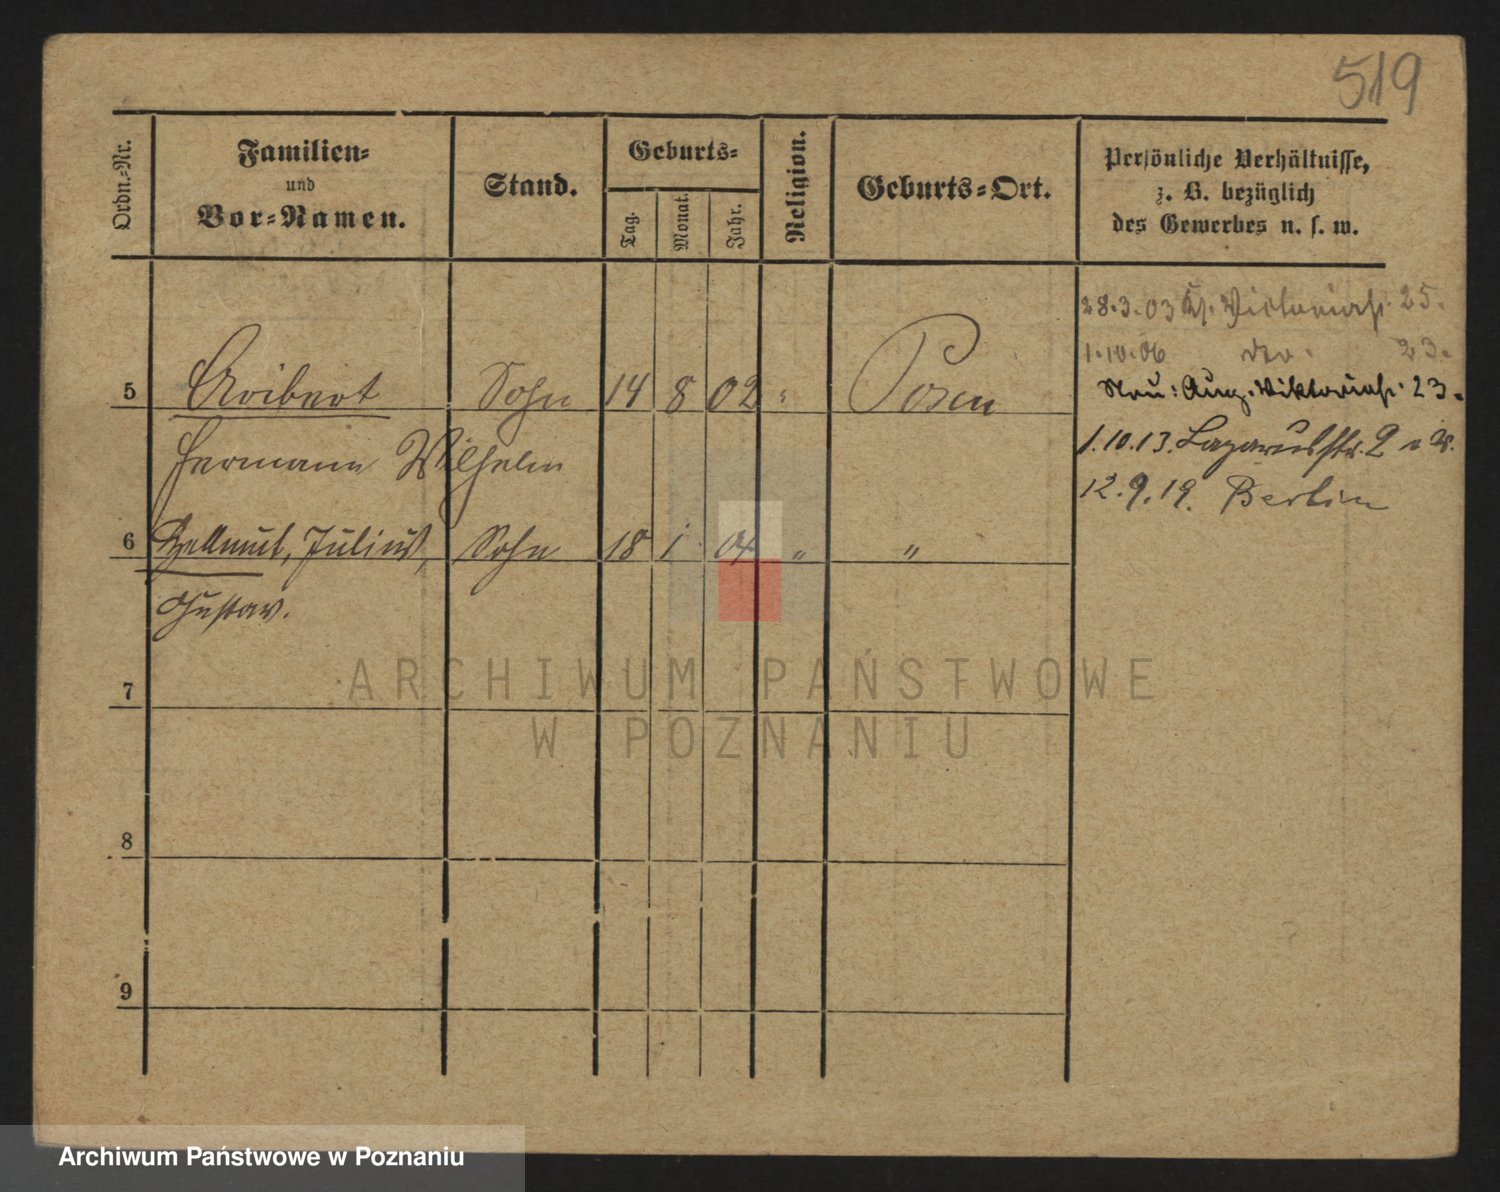 519
Ordn.-Nr.
Familien-
und
Vor-Namen.
Stand.
Geburts-
Tag.
Monat.
Jahr.
Religion.
Geburts-Ort.
Persönliche Verhältnisse,
z. B. bezüglich
des Gewerbes u. s. w.
28.3.03 Victoriastr. 25.
1.10.06 23.
5 Aribert Sohn 14 8 02 " Posen
Neu: Aug. Viktoriastr. 23.
Hermann Wilhelm
1.10.13. Lazarusstr. 2
12.9.19. Berlin
6 Hellmut, Julius, Sohn 18 1 04 " "
Gustav.
7
ARCHIWUM PAŃSTWOWE
W POZNANIU
8
9
Archiwum Państwowe w Poznaniu